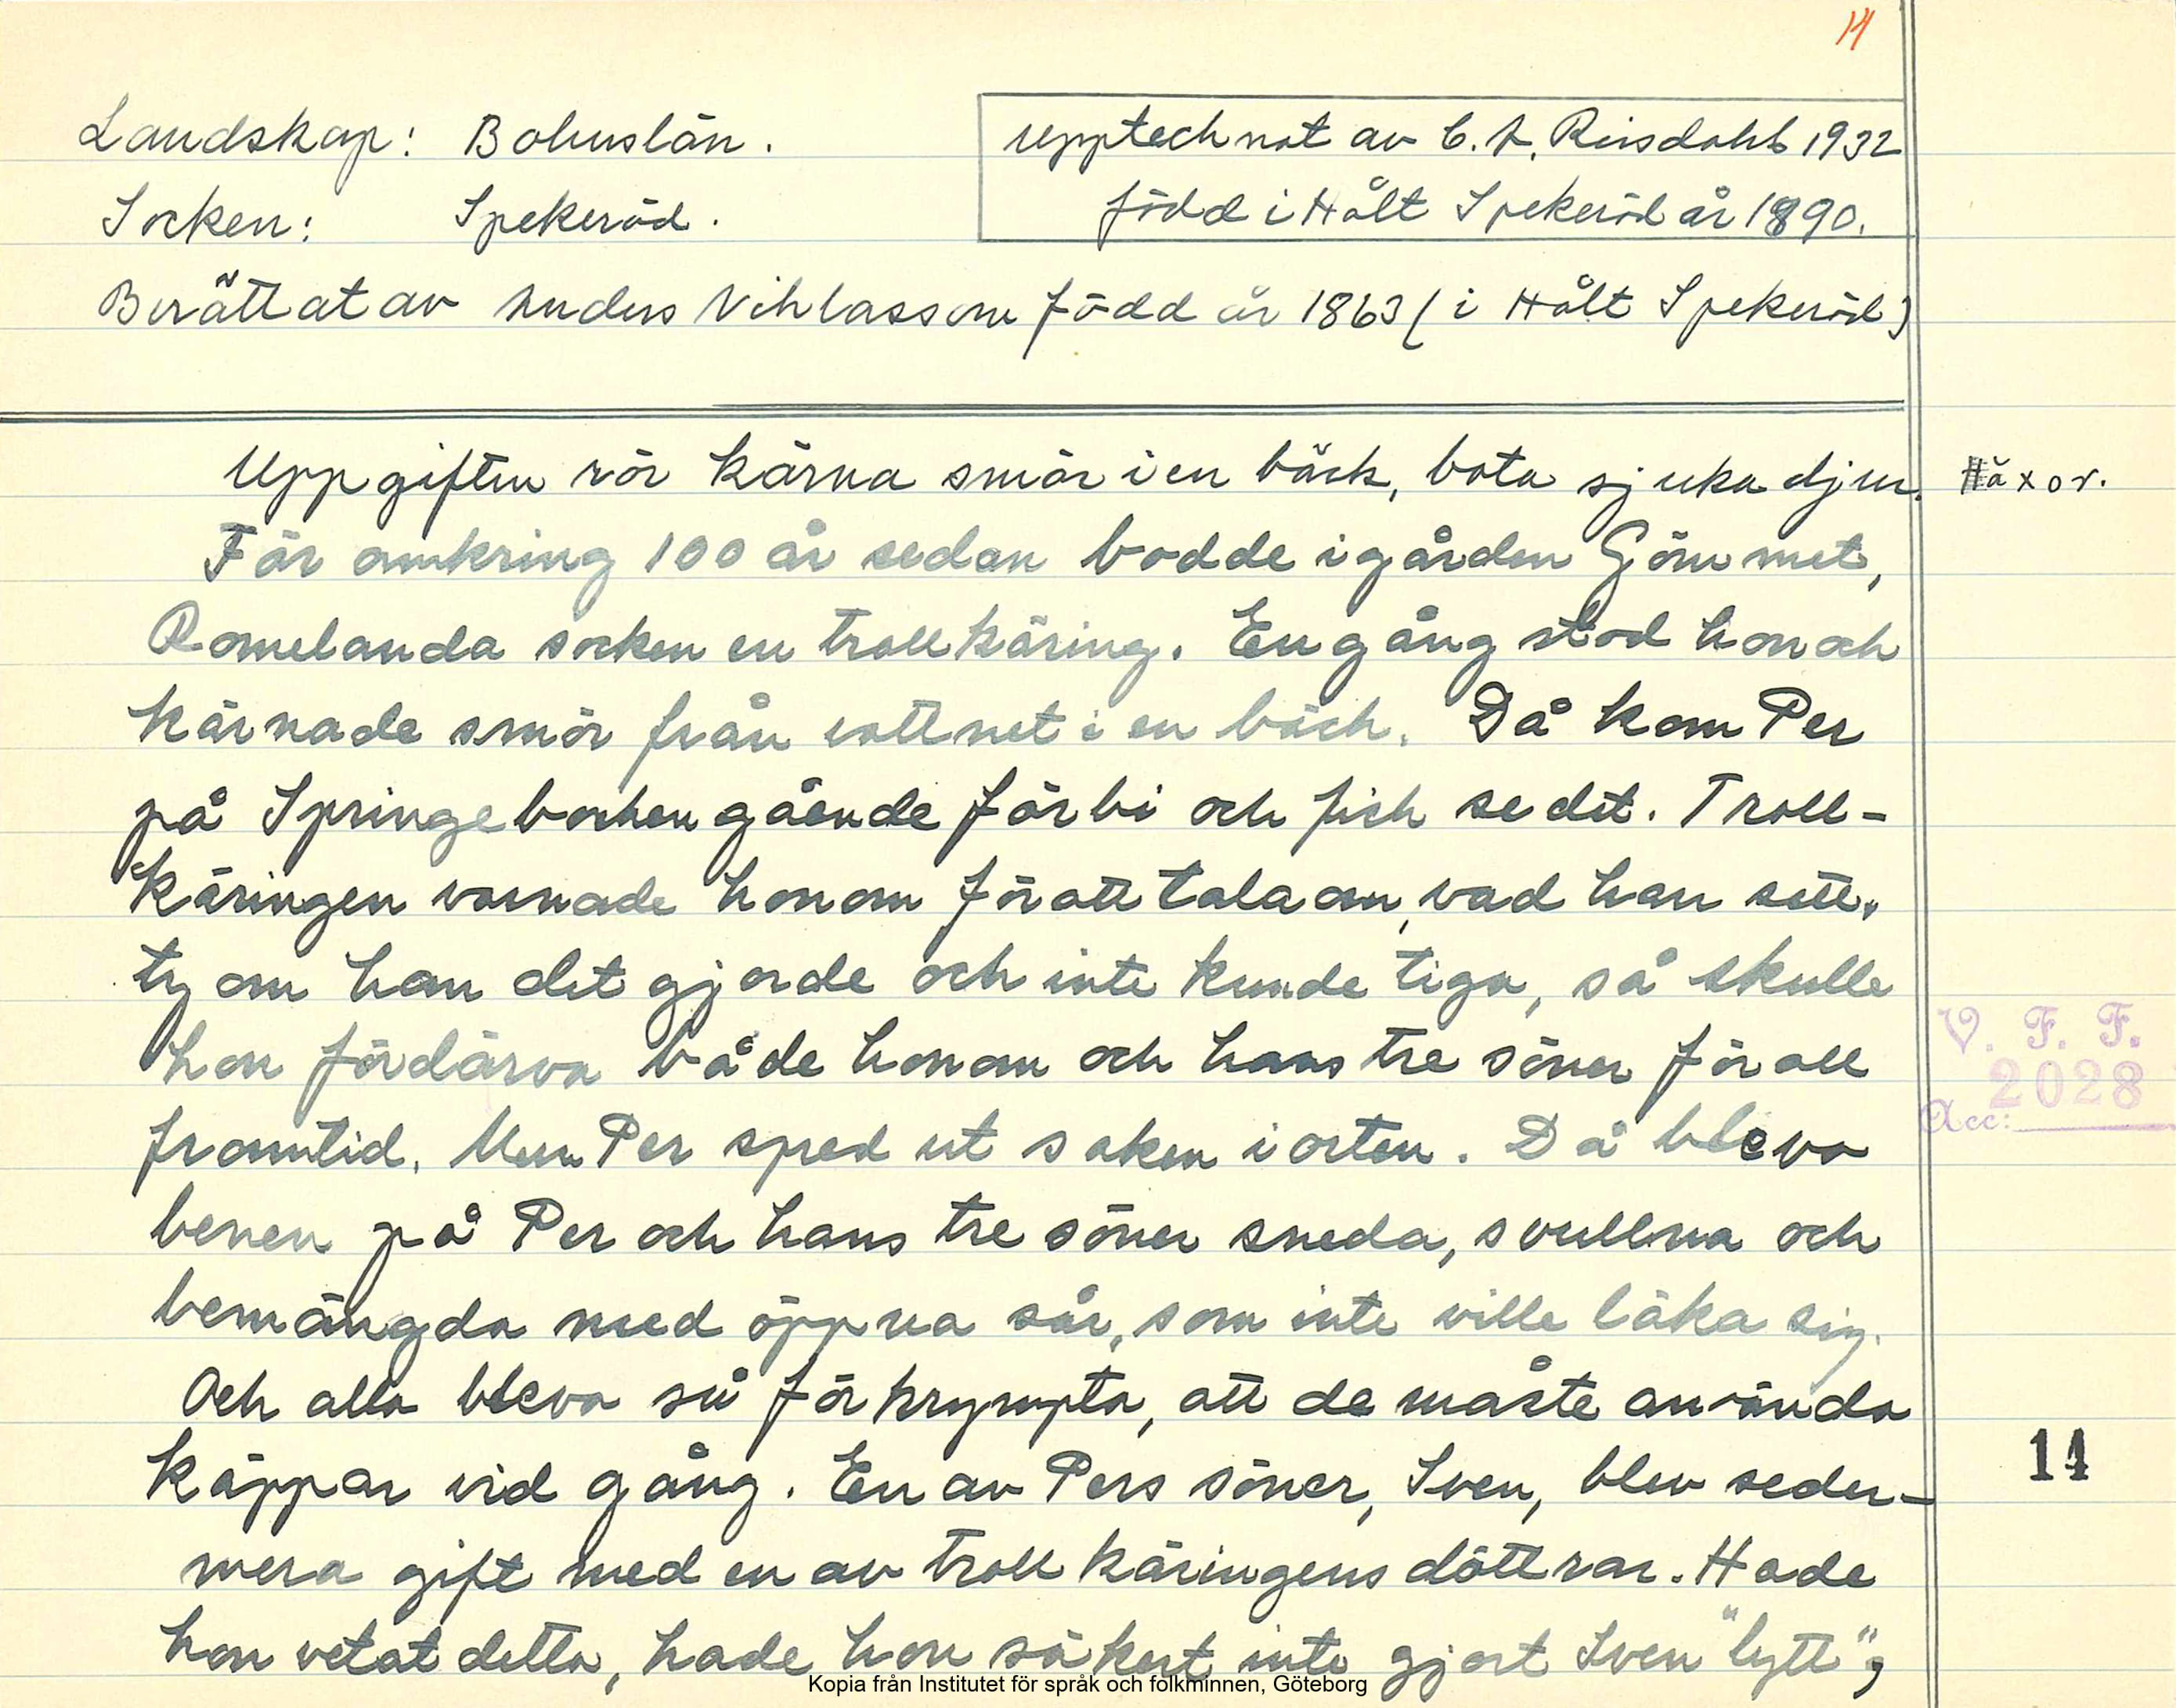 14
Landskap: Bohuslän.
Upptecknat av C. A. Rinsdahl 1932
Socken: Spekeröd.
född i Hålt Spekeröd år 1890.
Berättat av Anders Nihlasson född år 1863 (i Hålt Spekeröd)
Uppgiften rör kärna smör i en bäck, bota sjuka djur.
Häxor.
För omkring 100 år sedan bodde i gården Gömmet,
Romelanda socken en trollkäring. En gång stod hon och
kärnade smör från vattnet i en bäck. Då kom Per
på Springebacken gående förbi och fick se det. Troll-
käringen varnade honom för att tala om, vad han sett,
ty om han det gjorde och inte kunde tiga, så skulle
hon fördärva både honom och hans tre söner för all
framtid. Men Per spred ut saken i orten. Då bleva
benen på Per och hans tre söner sneda, svullna och
bemängda med öppna sår, som inte ville läka sig.
Och alla bleva så förkrympta, att de måste använda
käppar vid gång. En av Pers söner, Sven, blev seder-
mera gift med en av trollkäringens döttrar. Hade
hon vetat detta, hade hon säkert inte gjort Sven "lytt",
V. F. F.
2028
Acc:
14
Kopia från Institutet för språk och folkminnen, Göteborg